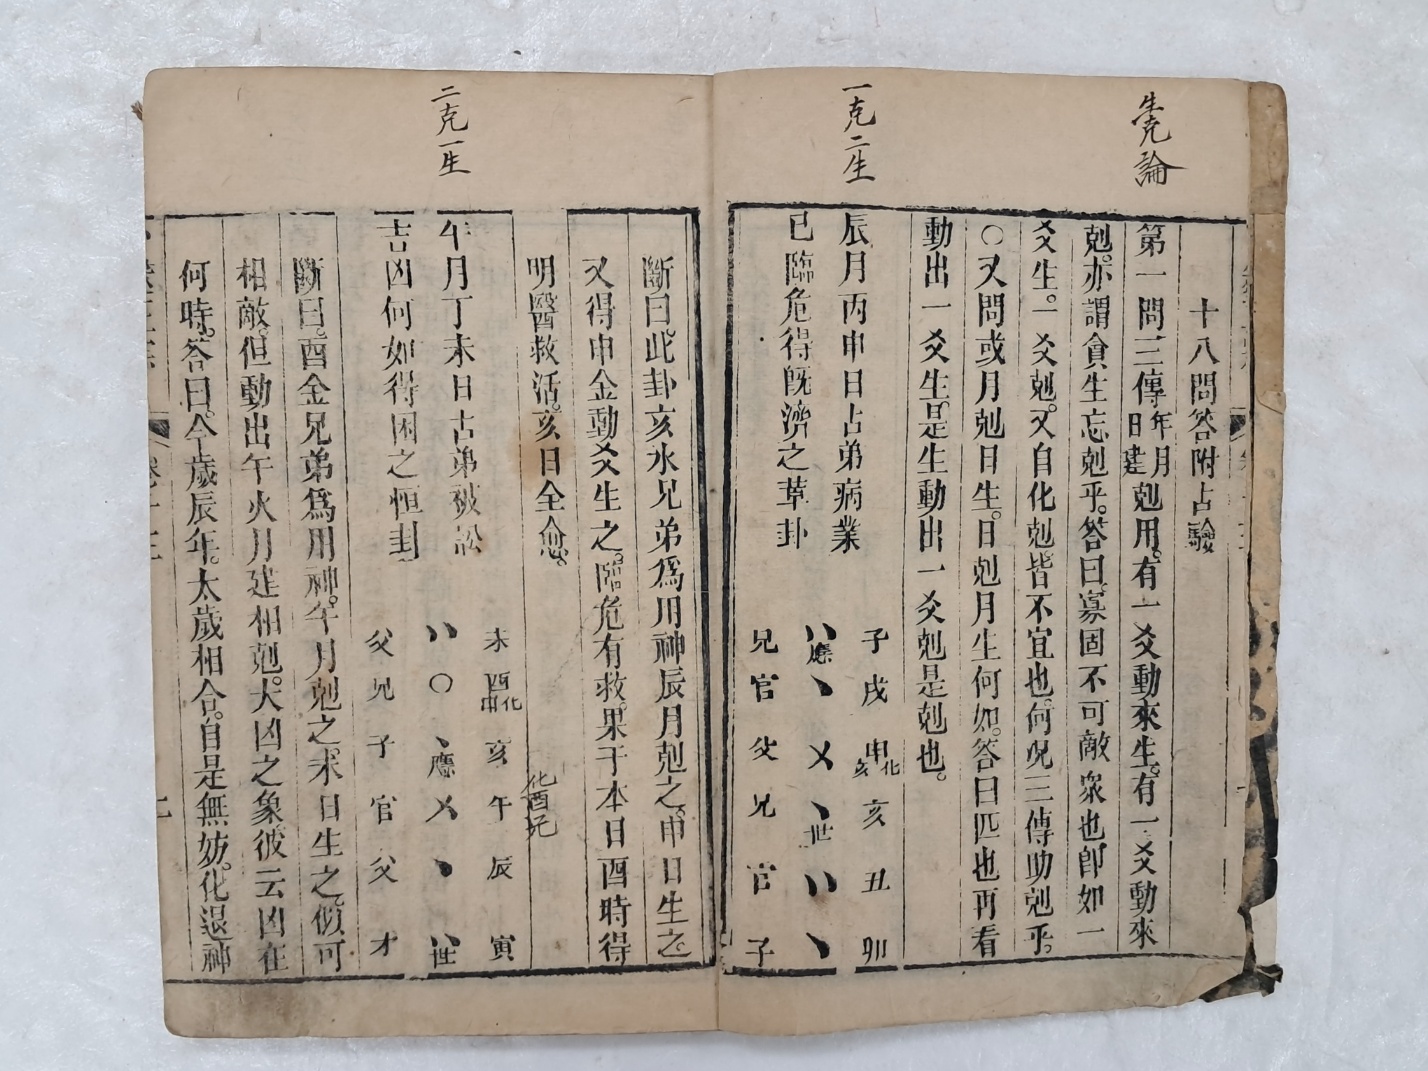 生克論
一克二生
十八問答附占驗
第一問三傳年月日建剋用有一爻動來生有一爻動來
剋亦謂貪生忘剋乎答曰寡固不可敵衆也即如一
爻生一爻剋又自化剋皆不宜也何况三傳助剋乎
○又問或月剋日生日剋月生何如答曰匹也再看
動出一爻生是生動出一爻剋是剋也
辰月丙申日占弟病業
已臨危得旣濟之革卦
子戌申化亥亥丑卯
應世
兄官父兄官子
二克一生
斷曰此卦亥水兄弟爲用神辰月剋之申日生之
又得申金動爻生之臨危有救果于本日酉時得
明醫救活亥日全愈
午月丁未日占弟被訟
吉凶何如得困之恒卦
未酉化申亥午辰寅
化酉兄
○應世
父兄子官父才
斷曰酉金兄弟爲用神午月剋之未日生之似可
相敵但動出午火月建相剋大凶之象彼云凶在
何時答曰今歲辰年太歲相合自是無妨化退神